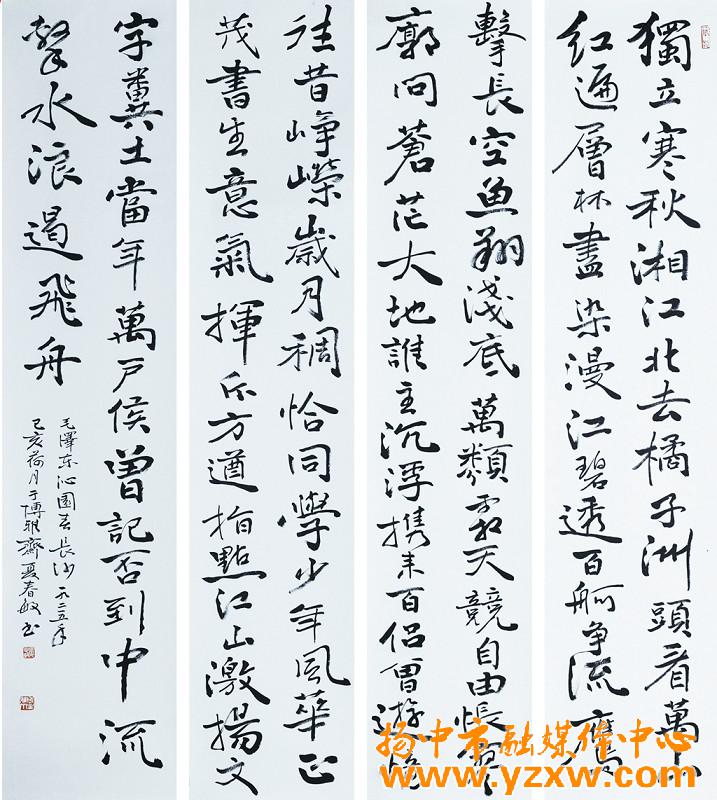 獨立寒秋湘江北去橘子洲頭看萬山
红遍層林盡染漫江碧透百舸争流鷹
擊長空魚翔淺底萬類霜天競自由悵寥
廓問蒼茫大地誰主沉浮携来百侣曾遊憶
往昔崢嶸歲月稠恰同學少年風華正
茂書生意氣揮斥方遒指點江山激揚文
字糞土當年萬户侯曾記否到中流
擊水浪遏飛舟
毛澤东沁園春長沙一九二五年
己亥荷月于博雅齋夏春敏书
扬中市融媒体中心
www.yzxw.com